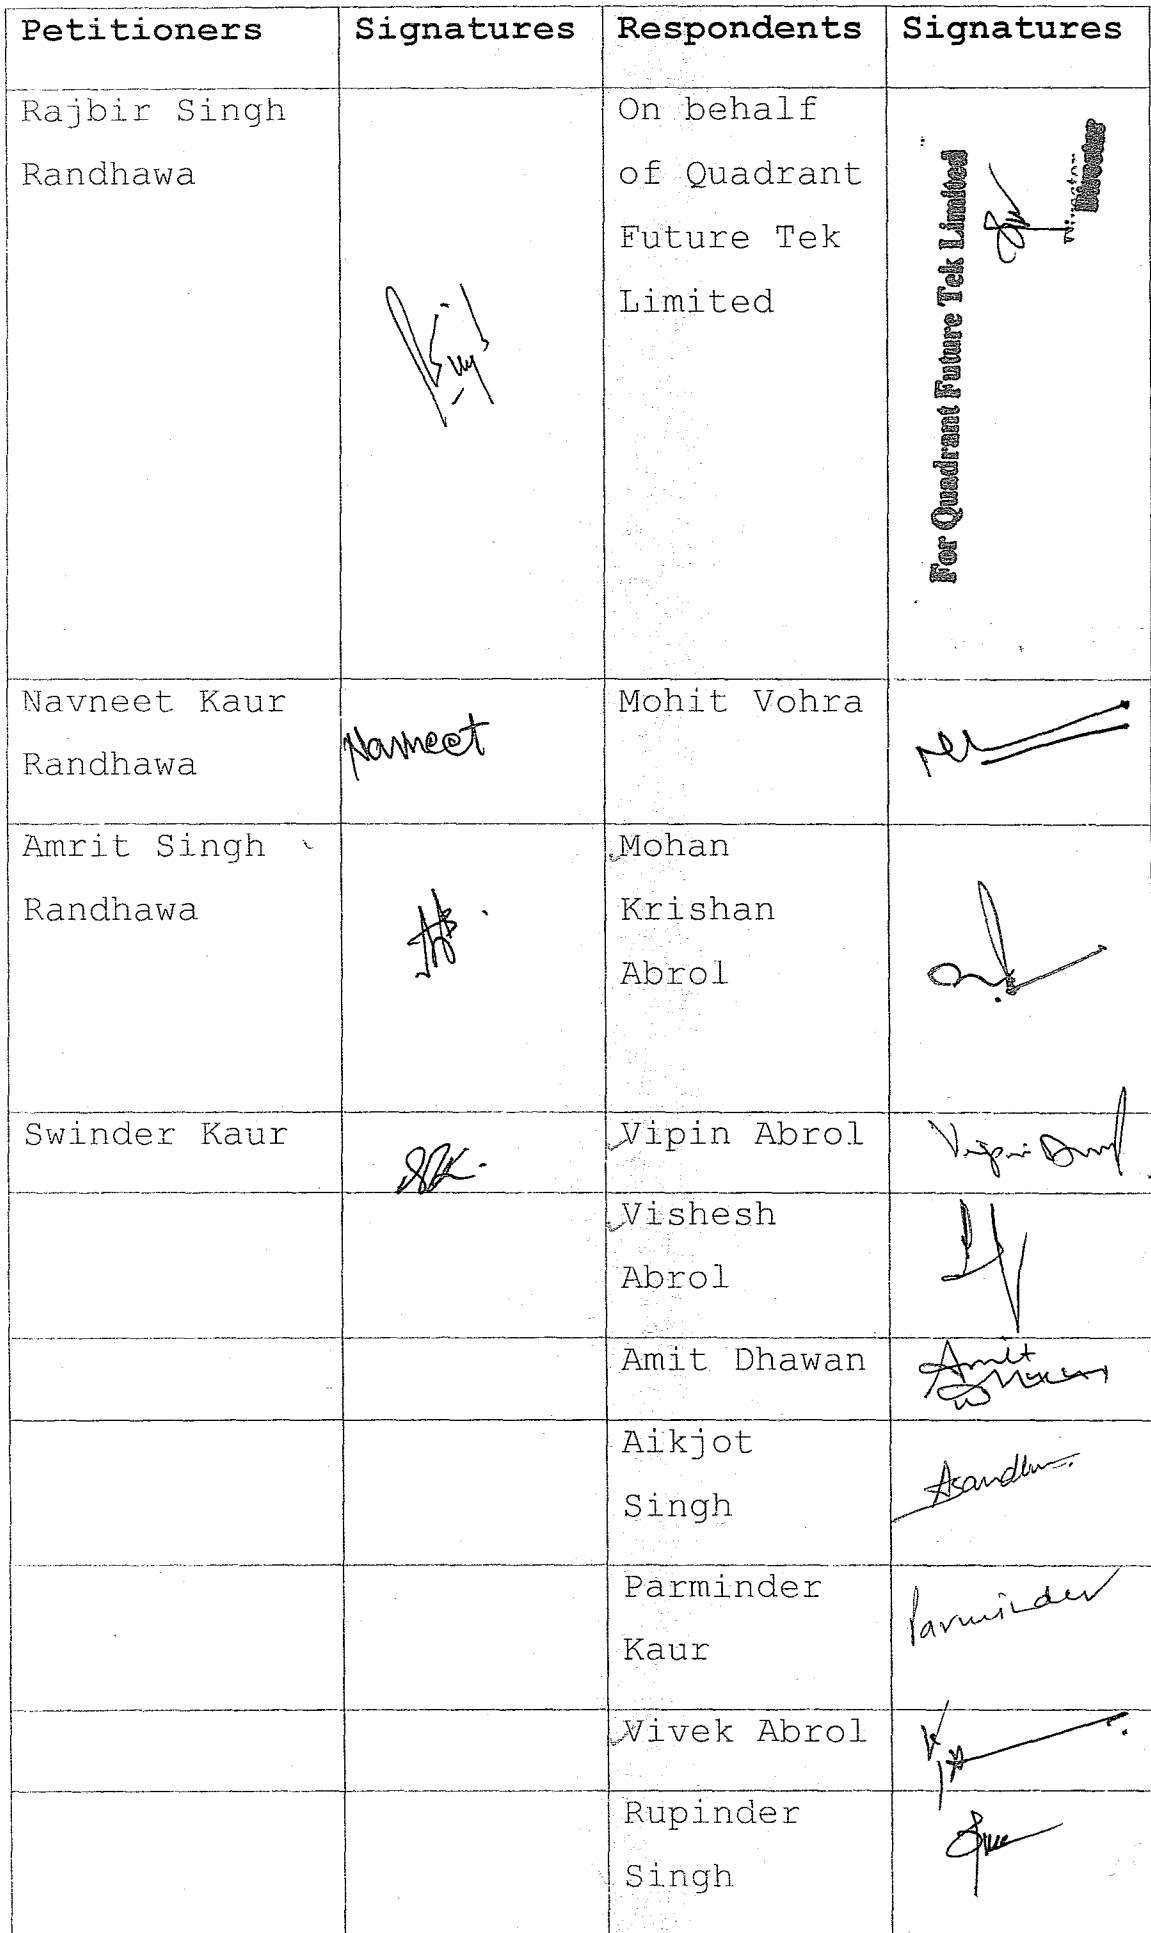 Petitioners Signatures Respondents Signatures
Rajbir Singh
Randhawa
On behalf
of Quadrant
Future Tek
Limited
For Quadrant Future Tek Limited
Director
Navneet Kaur
Randhawa
Navneet
Mohit Vohra
Amrit Singh
Randhawa
Mohan
Krishan
Abrol
Swinder Kaur
Vipin Abrol
Vipin Abrol
Vishesh
Abrol
Amit Dhawan
Amit
Dhawan
Aikjot
Singh
Asandhu
Parminder
Kaur
Parminder
Vivek Abrol
Rupinder
Singh